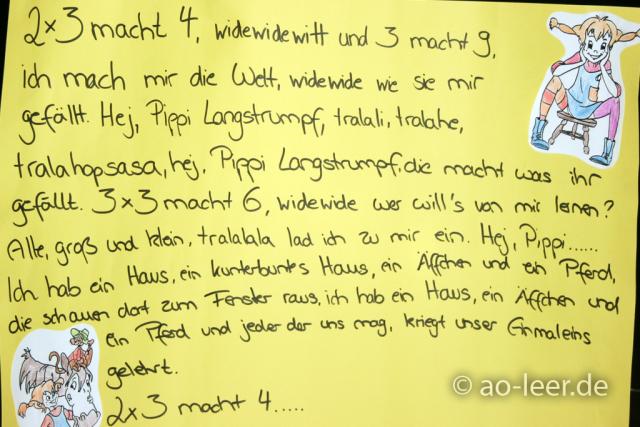 2×3 macht 4, widewidewitt und 3 macht 9,
ich mach mir die Welt, widewide wie sie mir
gefällt. Hej, Pippi Langstrumpf, tralali, tralahe,
tralahopsasa, hej, Pippi Langstrumpf, die macht was ihr
gefällt. 3×3 macht 6, widewide wer will's von mir lernen?
Alle, groß und klein, tralalala lad ich zu mir ein. Hej, Pippi......
Ich hab ein Haus, ein kunterbuntes Haus, ein Äffchen und ein Pferd,
die schauen dort zum Fenster raus, ich hab ein Haus, ein Äffchen und
ein Pferd und jeder der uns mag, kriegt unser Einmaleins
gelehrt.
2×3 macht 4.....
© ao-leer.de